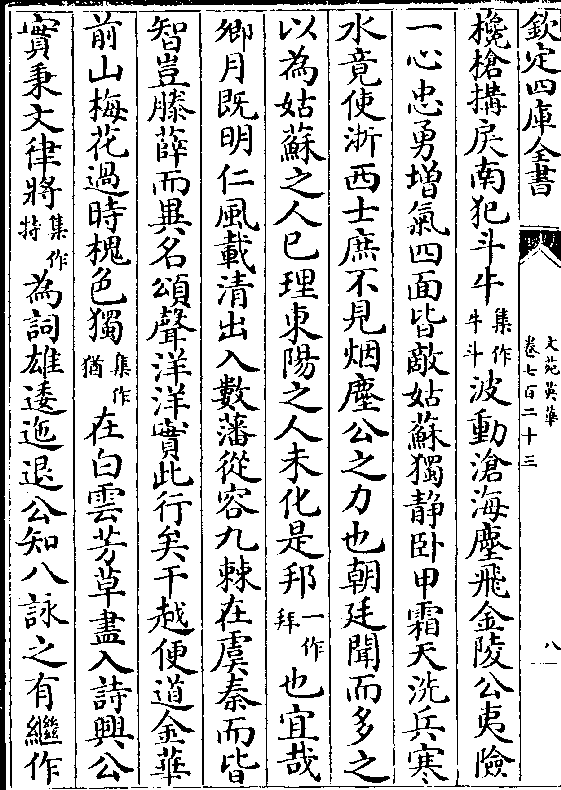 欽定四庫全書
文苑英華
卷七百二十三
八
欃槍搆戾南犯斗牛集作牛斗波動滄海塵飛金陵公夷險
一心忠勇增氣四面皆敵姑蘇獨静卧甲霜天洗兵寒
水竟使浙西士庶不見烟塵公之力也朝廷聞而多之
以為姑蘇之人已理東陽之人未化是邦一作拜也宜哉
卿月既明仁風載清出入數藩從容九棘在虞秦而皆
智豈滕薛而異名頌聲洋洋實此行矣干越便道金華
前山梅花過時槐色獨集作猶在白雲芳草盡入詩興公
實秉文律將集作特為詞雄逶迤退公知八詠之有繼作